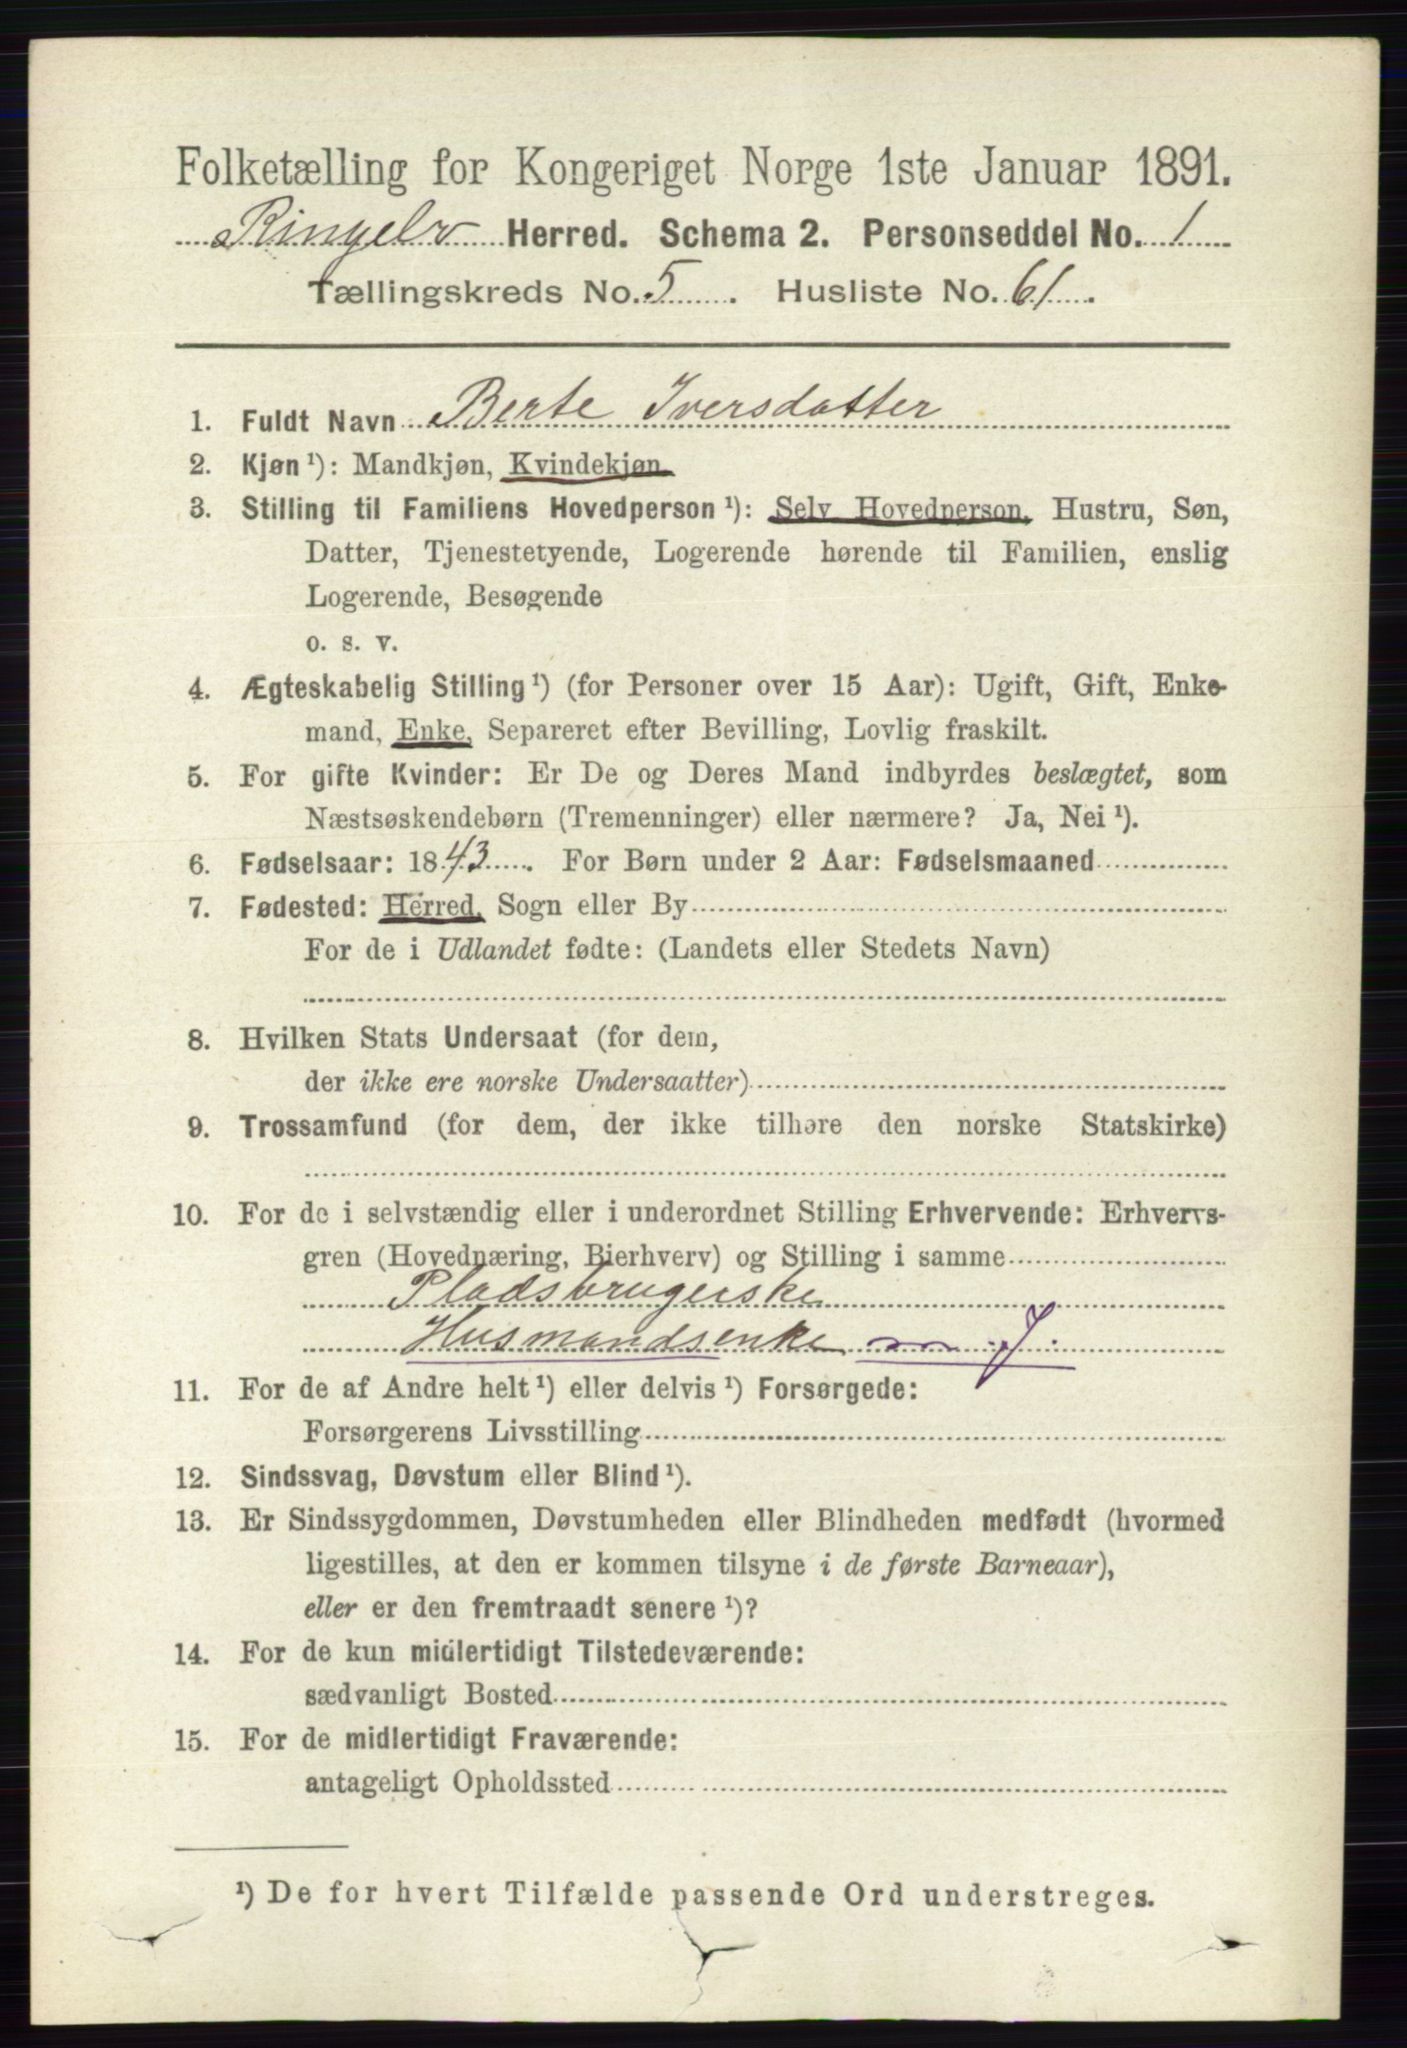 Folketælling for Kongeriget Norge 1ste Januar 1891.
Ringelv Herred. Schema 2. Personseddel No. 1
Tællingskreds No. 5. Husliste No. 61.
1. Fuldt Navn Berte Iversdatter
2. Kjøn ¹): Mandkjøn, Kvindekjøn.
3. Stilling til Familiens Hovedperson ¹): Selv Hovedperson, Hustru, Søn,
Datter, Tjenestetyende, Logerende hørende til Familien, enslig
Logerende, Besøgende
o. s. v.
4. Ægteskabelig Stilling ¹) (for Personer over 15 Aar): Ugift, Gift, Enke-
mand, Enke, Separeret efter Bevilling, Lovlig fraskilt.
5. For gifte Kvinder: Er De og Deres Mand indbyrdes beslægtet, som
Næstsøskendebørn (Tremenninger) eller nærmere? Ja, Nei ¹).
6. Fødselsaar: 1843. For Børn under 2 Aar: Fødselsmaaned
7. Fødested: Herred, Sogn eller By
For de i Udlandet fødte: (Landets eller Stedets Navn)
8. Hvilken Stats Undersaat (for dem,
der ikke ere norske Undersaatter)
9. Trossamfund (for dem, der ikke tilhøre den norske Statskirke)
10. For de i selvstændig eller i underordnet Stilling Erhvervende: Erhvervs-
gren (Hovednæring, Bierhverv) og Stilling i samme
Pladsbrugerske
Husmandsenke m. J.
11. For de af Andre helt ¹) eller delvis ¹) Forsørgede:
Forsørgerens Livsstilling
12. Sindssvag, Døvstum eller Blind ¹).
13. Er Sindssygdommen, Døvstumheden eller Blindheden medfødt (hvormed
ligestilles, at den er kommen tilsyne i de første Barneaar),
eller er den fremtraadt senere ¹)?
14. For de kun midlertidigt Tilstedeværende:
sædvanligt Bosted
15. For de midlertidigt Fraværende:
antageligt Opholdssted
¹) De for hvert Tilfælde passende Ord understreges.